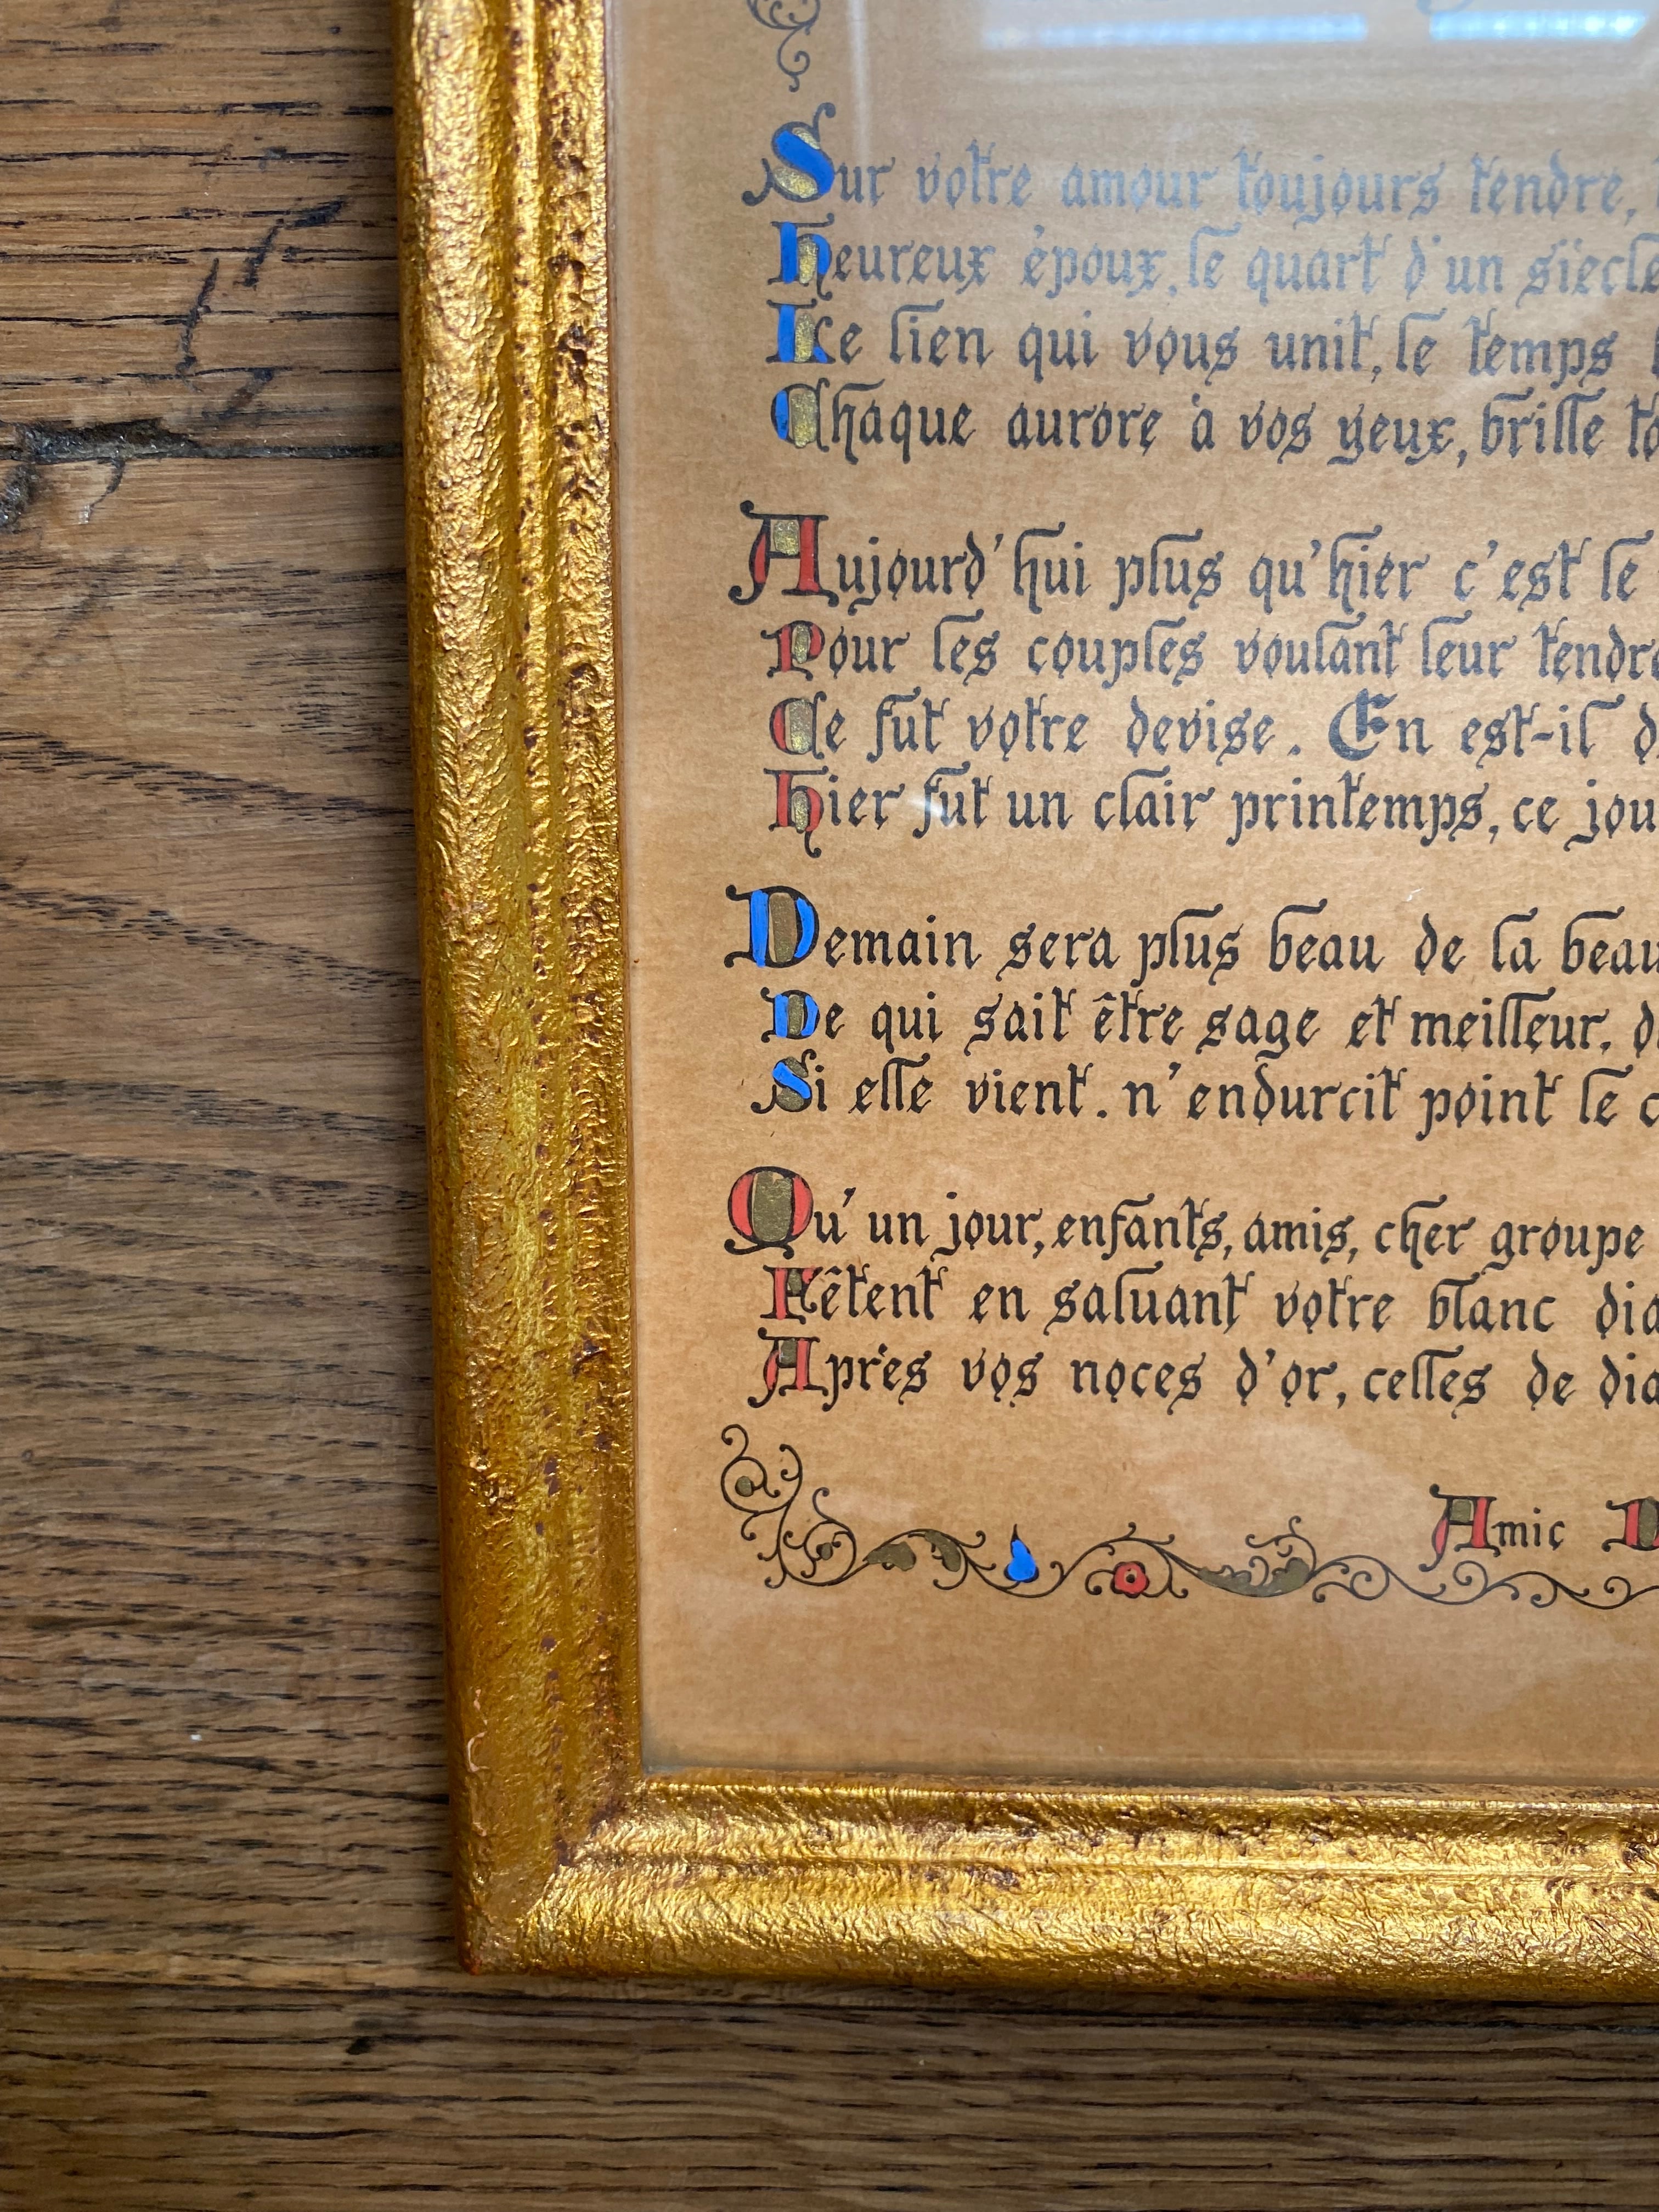 Sur votre amour toujours tendre,
heureux époux, le quart d'un siècle
Le lien qui vous unit, le temps
Chaque aurore à vos yeux, brille
Aujourd'hui plus qu'hier c'est le
Pour les couples voulant leur
Ce fut votre devise. En est-il
Hier fut un clair printemps, ce
Demain sera plus beau de la
De qui sait être sage et meilleur.
Si elle vient. n'endurcit point le
Qu'un jour, enfants, amis, cher groupe
Fêtent en saluant votre blanc
Après vos noces d'or, celles de
Amic